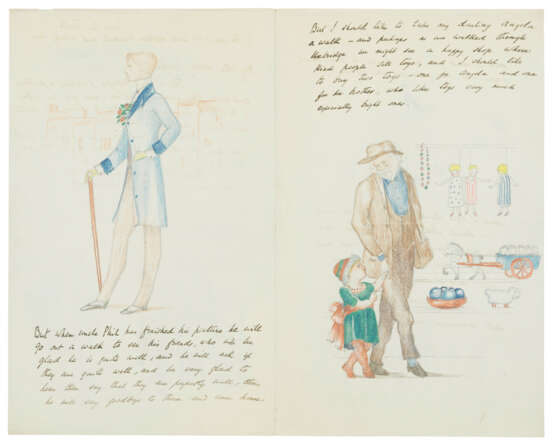 But when uncle Phil has finished his picture he will
go out a walk to see his friends, who will be
glad he is quite well, and he will ask if
they are quite well, and be very glad to
hear them say that they are perfectly well, then
he will say goodbye to them and come home.
But I should like to take my darling Angela
a walk - and perhaps as we walked through
we might see a happy shop where
kind people sell toys, and I should like
to buy two toys - one for Angela and one
for her brother, who likes toys very much
especially bright ones